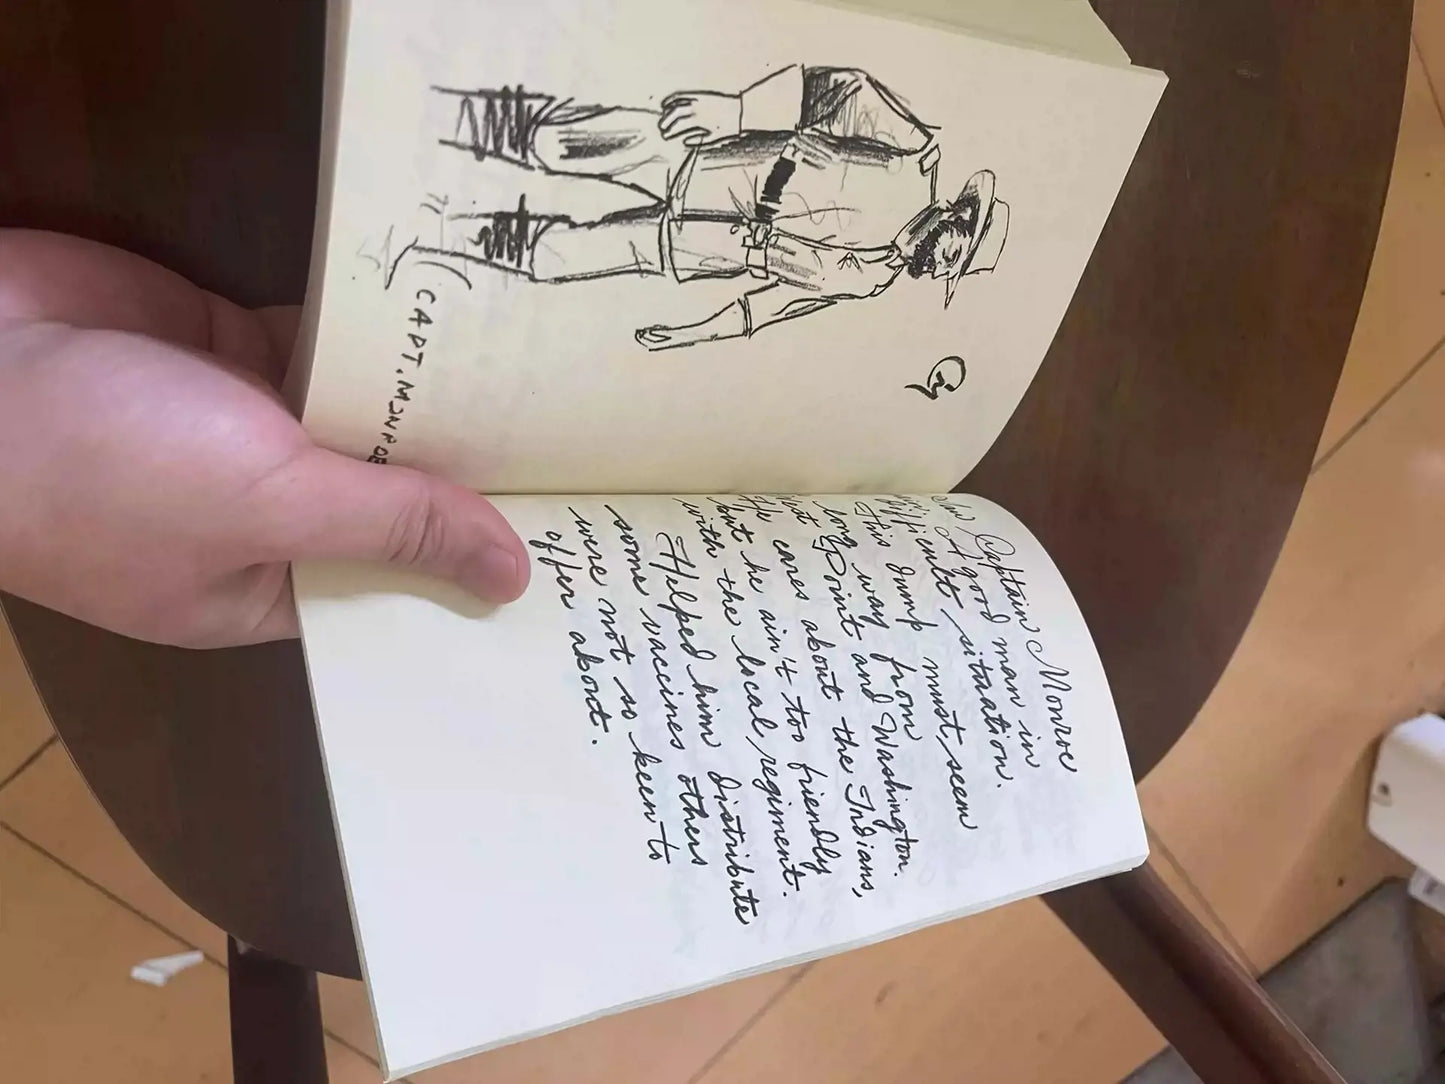 CAPT. MONROE
Captain Monroe
A good man in
difficult situation.
This Jump must seem
long way from
West Point and Washington.
He cares about the Indians,
but he ain't too friendly
with the local regiment.
Helped him distribute
some vaccines others
were not so keen to
offer about.